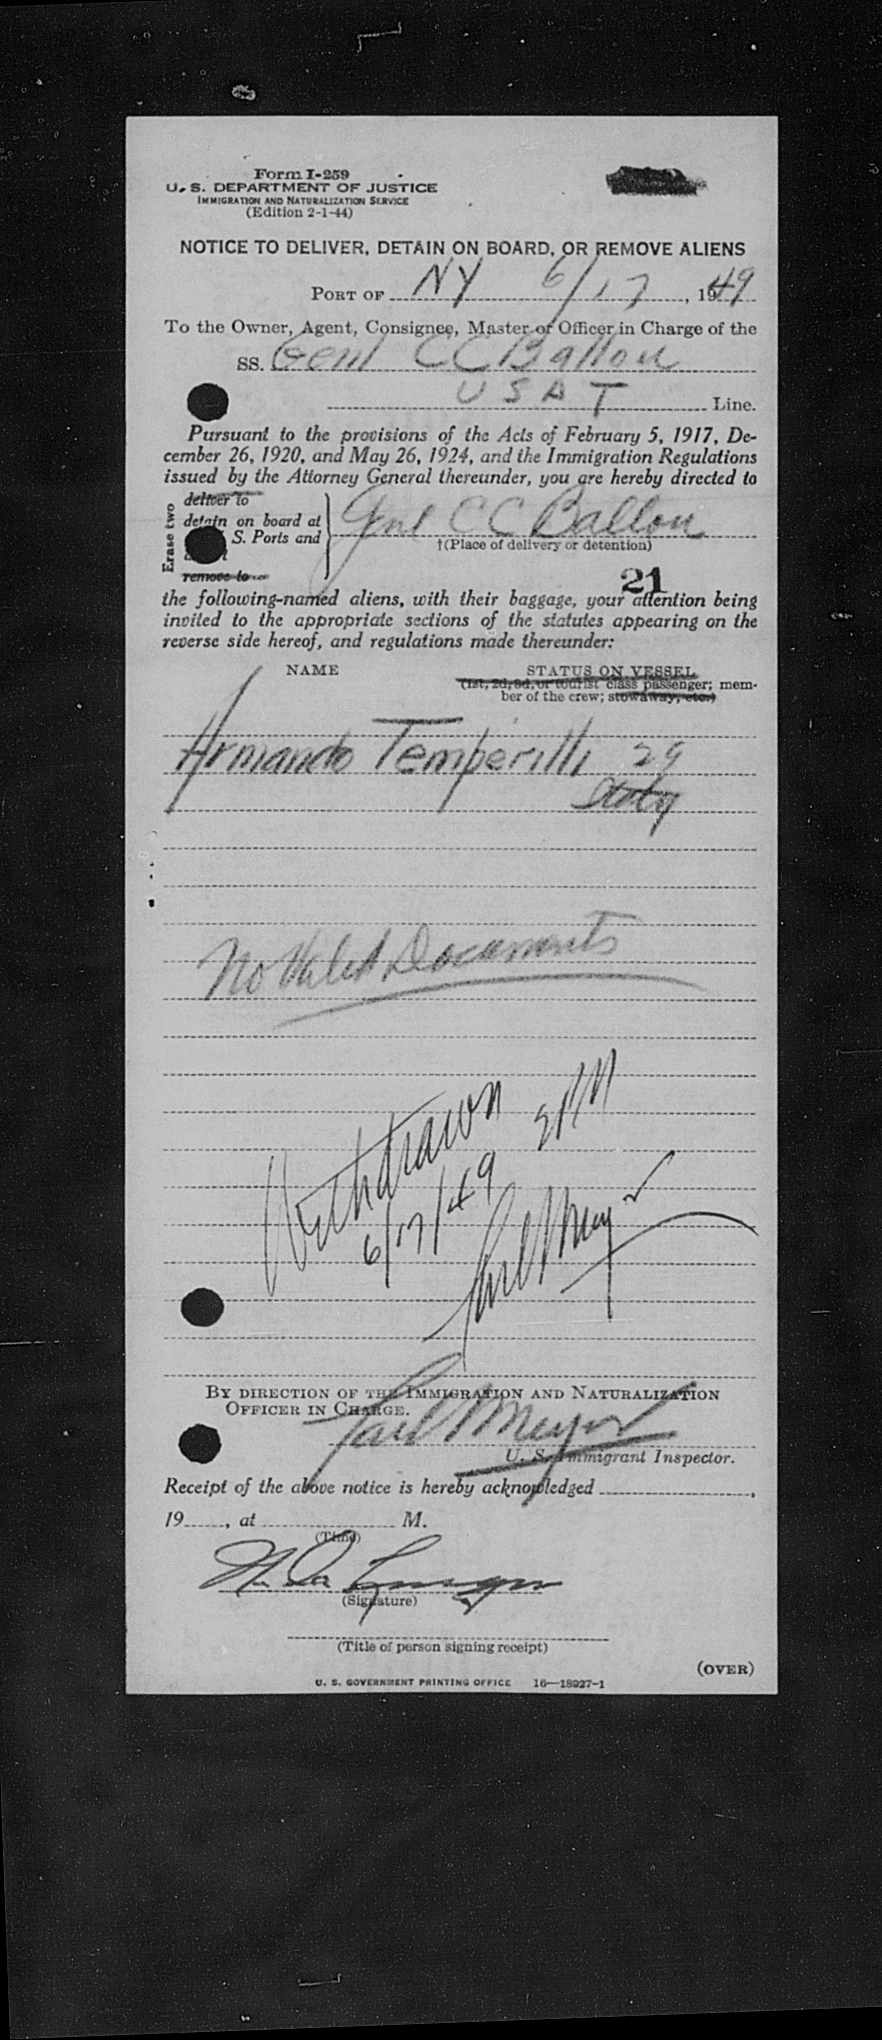 Form I-259
U. S. DEPARTMENT OF JUSTICE
IMMIGRATION AND NATURALIZATION SERVICE
(Edition 2-1-44)
NOTICE TO DELIVER, DETAIN ON BOARD, OR REMOVE ALIENS
PORT OF NY 6/17, 1949
To the Owner, Agent, Consignee, Master or Officer in Charge of the
SS. Genl C C Ballou
U S A T Line.
Pursuant to the provisions of the Acts of February 5, 1917, De-
cember 26, 1920, and May 26, 1924, and the Immigration Regulations
issued by the Attorney General thereunder, you are hereby directed to
Erase two
deliver to
detain on board at
S. Ports and
remove to
Genl C C Ballou
†(Place of delivery or detention)
21
the following-named aliens, with their baggage, your attention being
invited to the appropriate sections of the statutes appearing on the
reverse side hereof, and regulations made thereunder:
NAME STATUS ON VESSEL
(1st, 2d, 3d, or tourist class passenger; mem-
ber of the crew; stowaway, etc.)
Armando Temperilli 29
Italy
No Valid Documents
Withdrawn 2PM
6/17/49
Meyer
BY DIRECTION OF THE IMMIGRATION AND NATURALIZATION
OFFICER IN CHARGE.
Meyer
U. S. Immigrant Inspector.
Receipt of the above notice is hereby acknowledged
19, at M.
(Time)
(Signature)
(Title of person signing receipt)
(OVER)
U. S. GOVERNMENT PRINTING OFFICE 16—18927-1